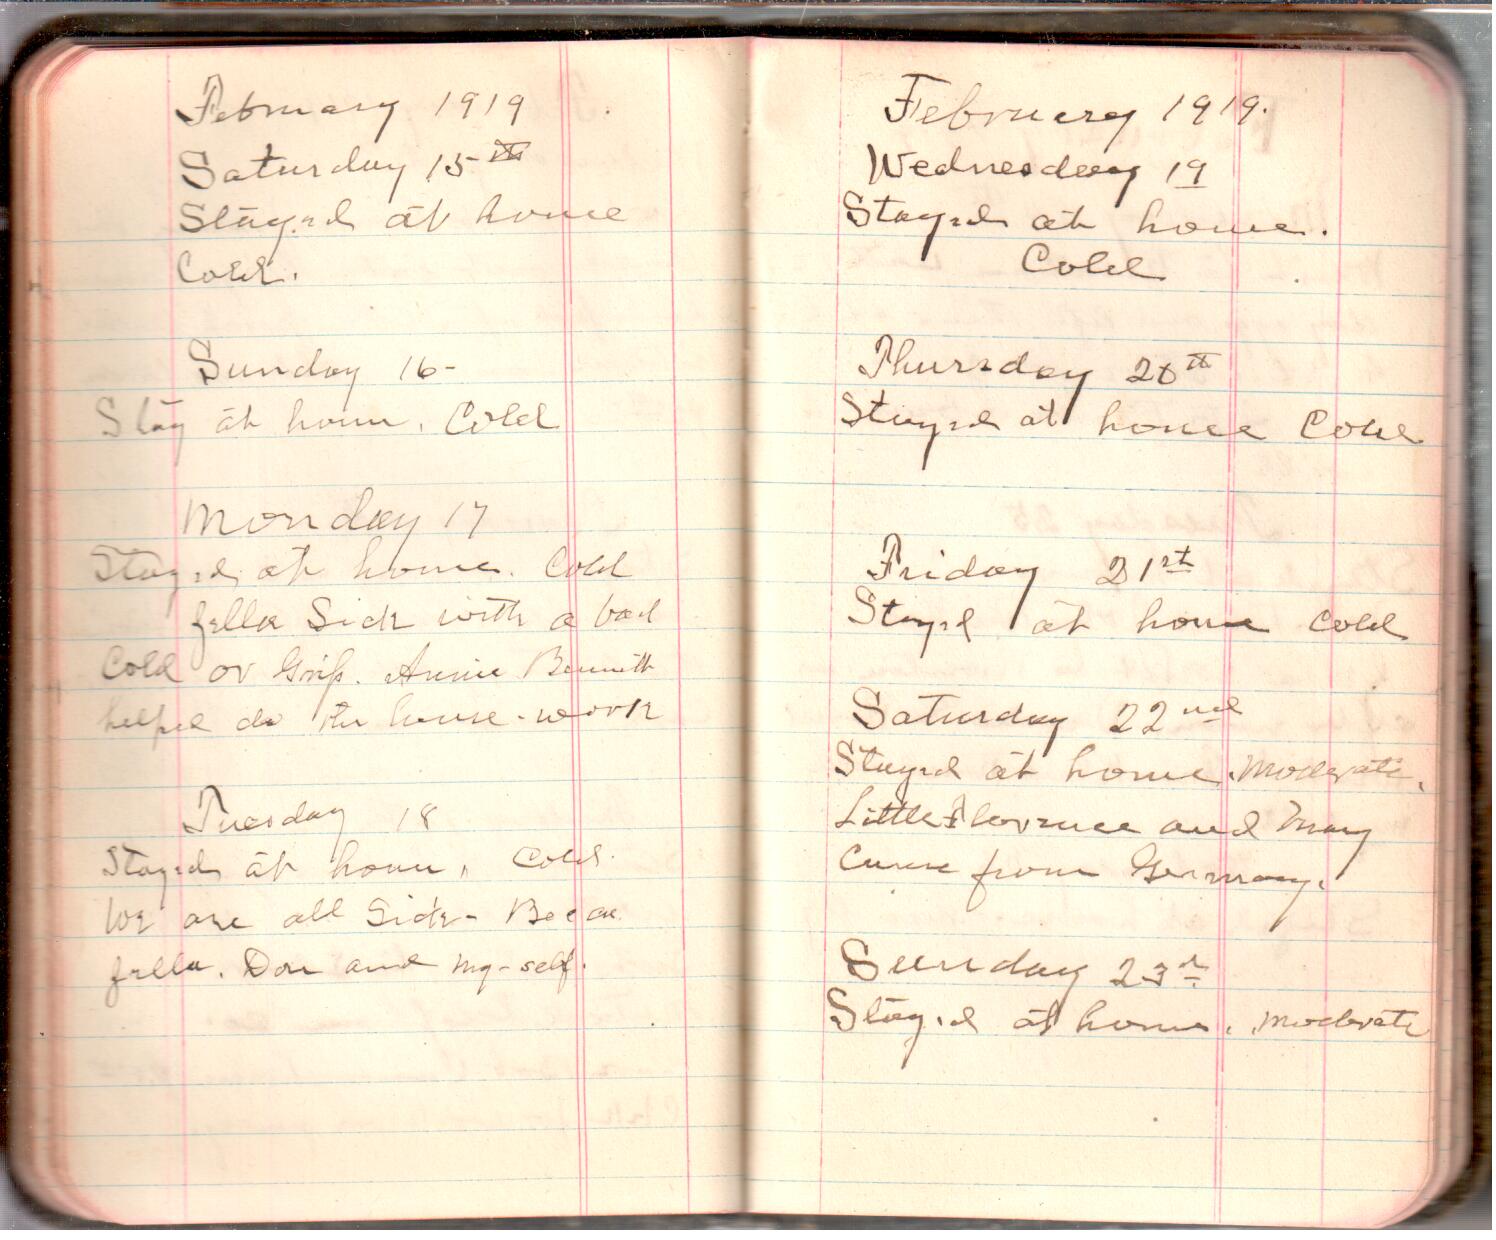 February 1919
Saturday 15th
Stayed at home
Cold.
Sunday 16-
Stay at home. Cold
Monday 17
Stayed at home. Cold
Jella Sick with a bad
Cold or Grip. Annie Bennett
helped do the house-work
Tuesday 18
Stayed at home, Cold.
We are all Sick-
Jella. Don and my-self.
February 1919.
Wednesday 19
Stayed at home.
Cold
Thursday 20th
Stayed at home Cold
Friday 21st
Stayed at home Cold
Saturday 22nd
Stayed at home. Moderate.
Little Florence and Mary
Came from Germany.
Sunday 23rd
Stayed at home. Moderate